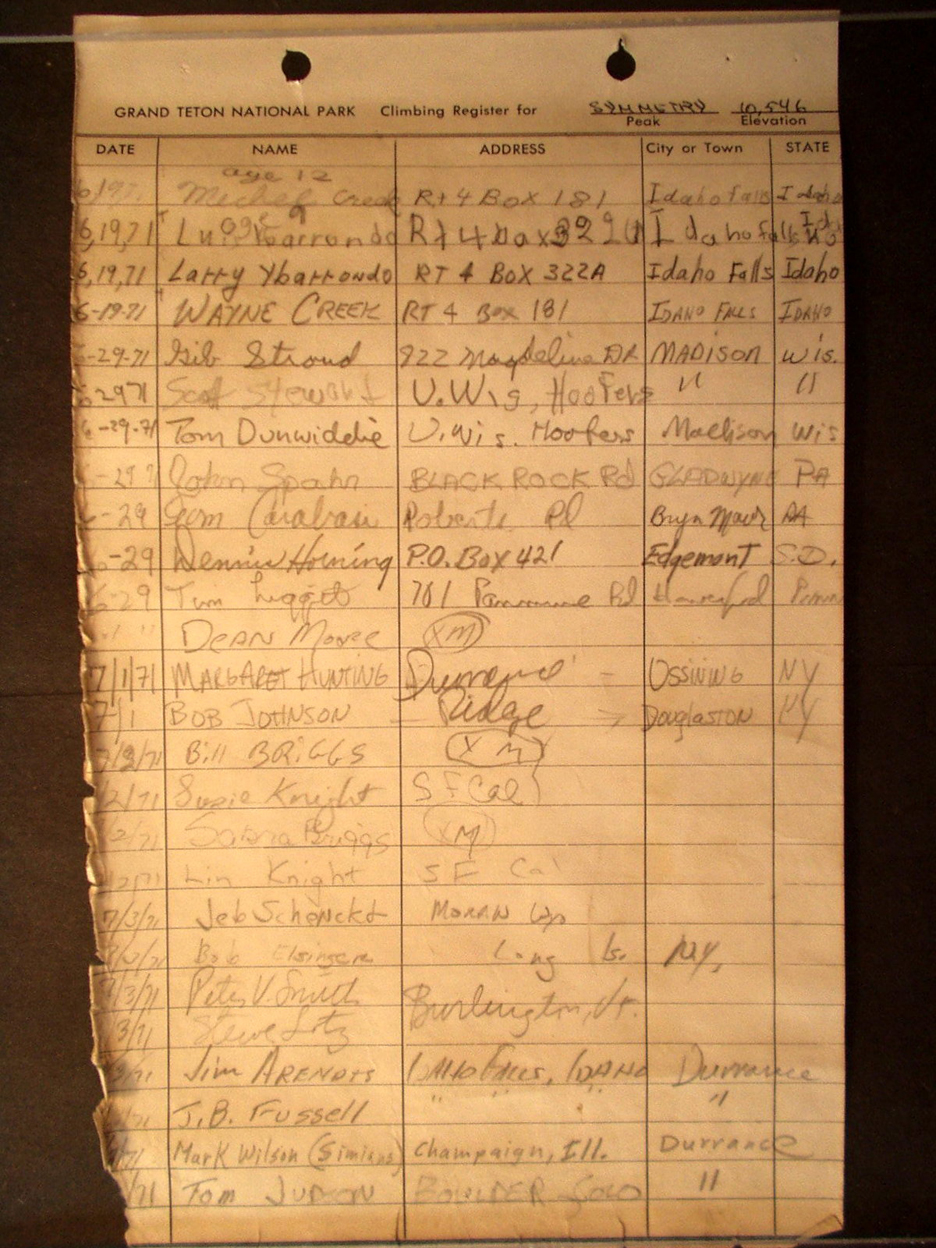 GRAND TETON NATIONAL PARK Climbing Register for SYMMETRY 10,546
Peak Elevation
DATE NAME ADDRESS City or Town STATE
age 12
Michel Creek Rt 4 Box 181 Idaho falls Idaho
age 9
6,19,71 Ybarrondo Rt 4 box 322A Idaho falls Id
6,19,71 Larry Ybarrondo RT 4 BOX 322A Idaho Falls Idaho
6-19-71 WAYNE CREEK RT 4 Box 181 IDAHO FALLS IDAHO
6-29-71 Gib Stroud 822 Magdeline DR MADISON Wis.
6-29 71 Scott Stewart U.Wis, Hoofers " "
6-29-71 Tom Dunwiddie U.Wis. Hoofers Madison Wis
6-29 7 John Spahr BLACK ROCK Rd GLADWYNE PA
6-29 Roberts Rd Bryn Mawr PA
6-29 Dennis Horning P.O. Box 421 Edgemont S.D.
6-29 Tim Liggett 701 Rd Haverford Penn
" " DEAN Moore (XM)
7/1/71 MARGARET HUNTING Durrance - OSSINING NY
7/1 BOB JOHNSON - Ridge - DOUGLASTON NY
7/2/71 Bill BRIGGS (XM)
7/2/71 Susie Knight SF Cal
7/2/71 Sabra Briggs (XM)
7/2/71 Lin Knight SF Cal
7/3/71 Jeb Schenckt MORAN Wyo
Bob Long Is. NY,
7/3/71 Pete V. Smith Burlington, Vt.
7/3/71 Steve Lotz
7/3/71 Jim ARENDTS IDAHO FALLS, IDAHO Durrance
/71 J.B. Fussell " " " "
/71 Mark Wilson (Simians) Champaign, Ill. Durrance
/71 Tom JUDSON BOULDER COLO "